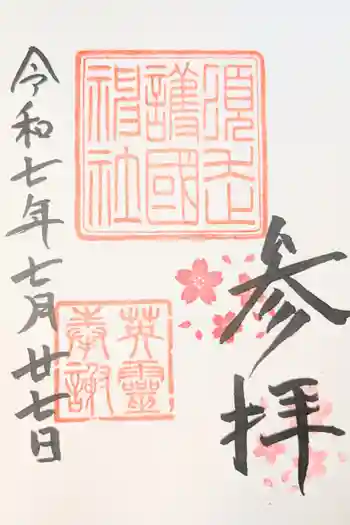 参拝
須走
護國
神社
英靈
奉謝
令和七年七月廿七日